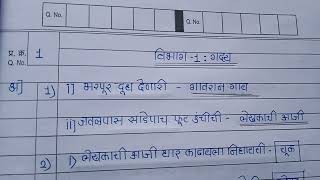 Q. No. Q. No.
प्र. क्र. 1 विभाग -1 : गद्य
Q. No.
अ) 1) i) भरपूर दूध देणारी - गावरान गाय
ii) जवळपास साडेपाच फूट उंचीची - लेखकाची आजी
2) i) लेखकाची आजी धार काढायला निघायची - चूक